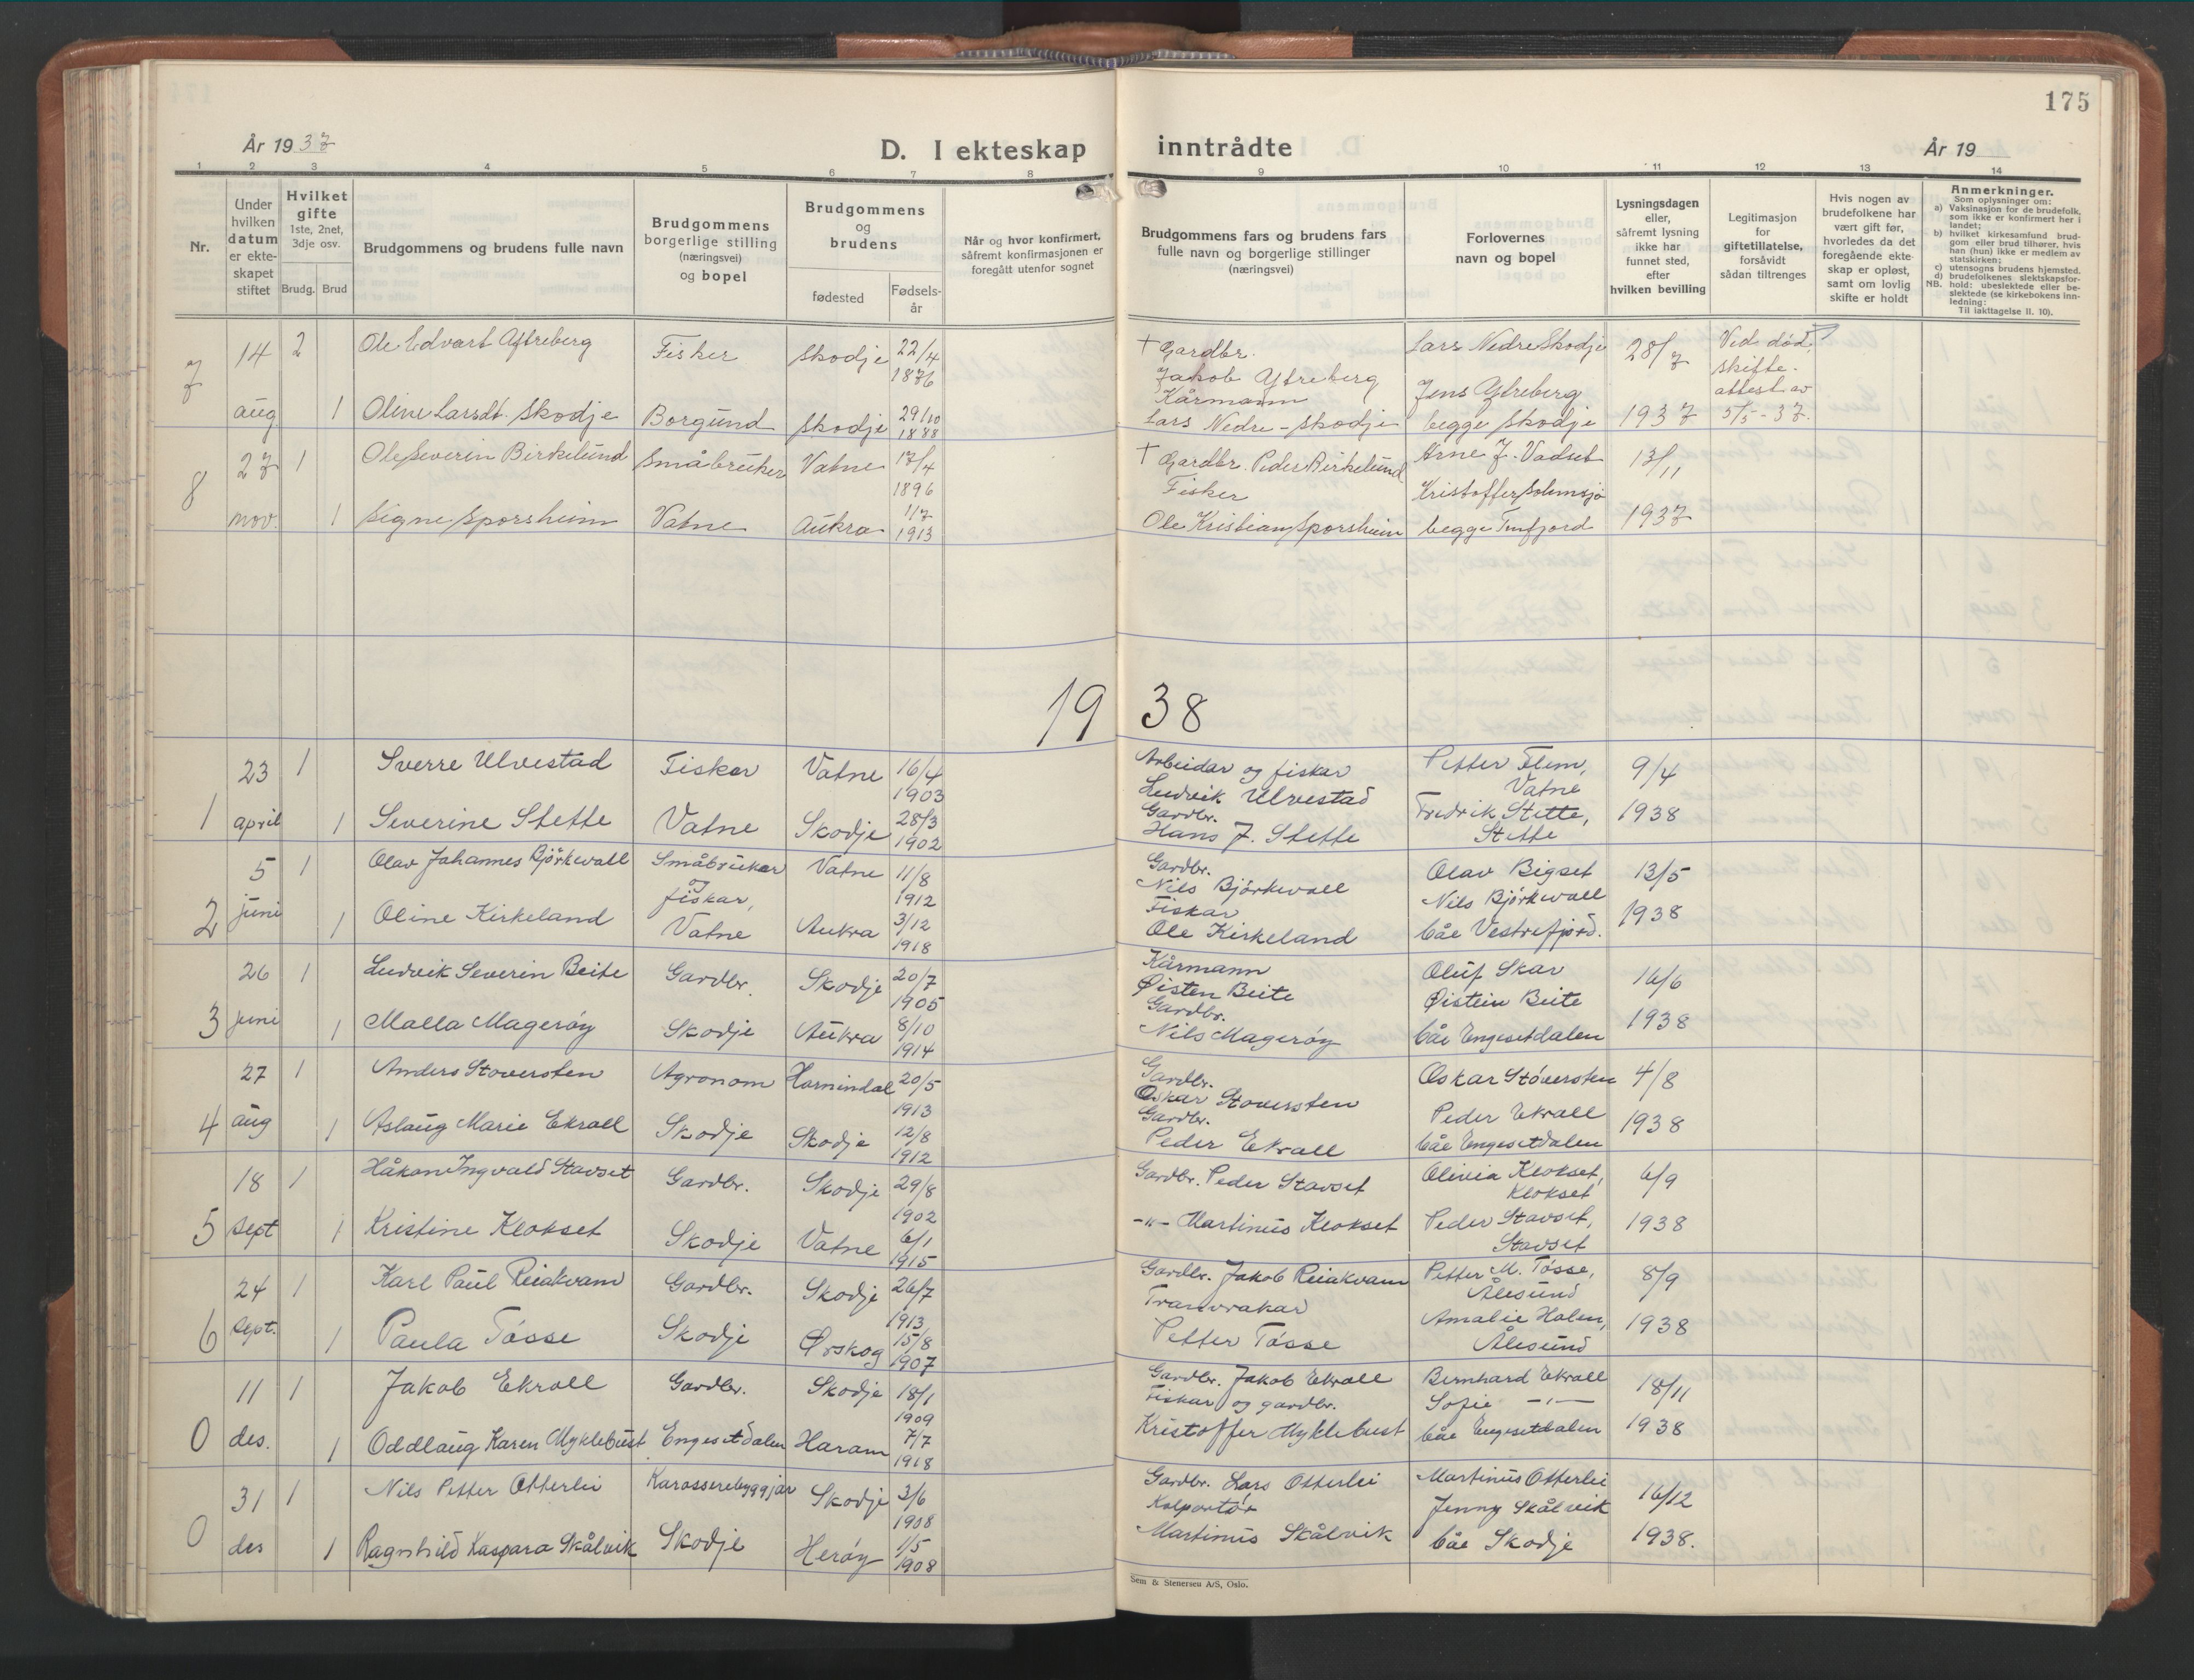 175
År 1937
D. I ekteskap inntrådte
År 19
1 2 3 4 5 6 7 8 9 10 11 12 13 14
Nr.
Under hvilken datum er ekte-skapet stiftet
Hvilket gifte 1ste, 2net, 3dje osv.
Brudg. Brud
Brudgommens og brudens fulle navn
Brudgommens borgerlige stilling (næringsvei) og bopel
Brudgommens og brudens
fødested
Fødsels-år
Når og hvor konfirmert, såfremt konfirmasjonen er foregått utenfor sognet
Brudgommens fars og brudens fars fulle navn og borgerlige stillinger (næringsvei)
Forlovernes navn og bopel
Lysningsdagen eller, såfremt lysning ikke har funnet sted, efter hvilken bevilling
Legitimasjon for giftetillatelse, forsåvidt sådan tiltrenges
Hvis nogen av brudefolkene har vært gift før, hvorledes da det foregående ekte-skap er opløst, samt om lovlig skifte er holdt
Anmerkninger.
Som oplysninger om:
a) Vaksinasjon for de brudefolk, som ikke er konfirmert her i landet;
b) hvilket kirkesamfund brud-gom eller brud tilhører, hvis han (hun) ikke er medlem av statskirken;
c) utensogns brudens hjemsted.
d) brudefolkenes slektskapsfor-hold: ubeslektede eller be-slektede (se kirkebokens inn-ledning:
NB.
Til iakttagelse II. 10).
7 14 2 Ole Edvart Ytreberg Fisker Skodje 22/4 1876 † Gardbr. Jakob Ytreberg Lars Nedre Skodje 28/7 Ved død, skifte-attest av 5/5-37.
aug 1 Oline Larsdt. Skodje Borgund Skodje 29/10 1888 Kårmann Lars Nedre-Skodje Jens Ytreberg begge Skodje 1937
8 27 1 Ole Severin Birkelund Småbruker Vatne 17/4 1896 † Gardbr. Peder Birkelund Arne J. Vadset 13/11
nov. 1 Signe Sporsheim Vatne Aukra 1/7 1913 Fisker Ole Kristian Sporsheim Kristoffer begge Tenfjord 1937
1938
1 23 1 Sverre Ulvestad Fiskar Vatne 16/4 1903 Arbeidar og fiskar Ludvik Ulvestad Petter Flem, Vatne 9/4
april 1 Severine Stette Vatne Skodje 28/3 1902 Gardbr. Hans J. Stette Fredrik Stette, Stette 1938
2 5 1 Olav Johannes Bjørkevoll Småbrukar og fiskar, Vatne 11/8 1912 Gardbr. Nils Bjørkevoll Olav Bigset 13/5
juni 1 Oline Kirkeland Vatne Aukra 3/12 1918 Fiskar Ole Kirkeland Nils Bjørkevoll båe Vestrefjord. 1938
3 26 1 Ludvik Severin Beite Gardbr. Skodje 20/7 1905 Kårmann Øisten Beite Oluf Skar 16/6
juni 1 Malla Magerøy Skodje Aukra 8/10 1914 Gardbr. Nils Magerøy Øistein Beite båe Engesetdalen 1938
4 27 1 Anders Støversten Agronom Hornindal 20/5 1913 Gardbr. Oskar Støversten Oskar Støversten 4/8
aug 1 Aslaug Marie Ekroll Skodje Skodje 12/8 1912 Gardbr. Peder Ekroll Peder Ekroll båe Engesetdalen 1938
5 18 1 Håkon Ingvald Stavset Gardbr. Skodje 29/8 1902 Gardbr. Peder Stavset Olivia Klokset, Klokset 6/9
sept 1 Kristine Klokset Skodje Vatne 6/1 1915 -"- Martinus Klokset Peder Stavset, Stavset 1938
6 24 1 Karl Paul Reiakvam Gardbr. Skodje 26/7 1913 Gardbr. Jakob Reiakvam Petter M. Tøsse, Ålesund 8/9
sept. 1 Paula Tøsse Skodje Ørskog 15/8 1907 Tranvrakar Petter Tøsse Amalie Holen, Ålesund 1938
0 11 1 Jakob Ekroll Gardbr. Skodje 18/1 1909 Gardbr. Jakob Ekroll Bernhard Ekroll 18/11
des. 1 Oddlaug Karen Myklebust Engesetdalen Haram 7/7 1918 Fiskar og gardbr. Kristoffer Myklebust Sofie -"- båe Engesetdalen 1938
0 31 1 Nils Petter Otterlei Karosseribyggjar Skodje 3/6 1908 Gardbr. Lars Otterlei Martinus Otterlei 16/12
des 1 Ragnhild Kaspara Skålvik Skodje Herøy 1/5 1908 Kolportør Martinus Skålvik Jenny Skålvik båe Skodje 1938.
Sem & Stenersen A/S, Oslo.